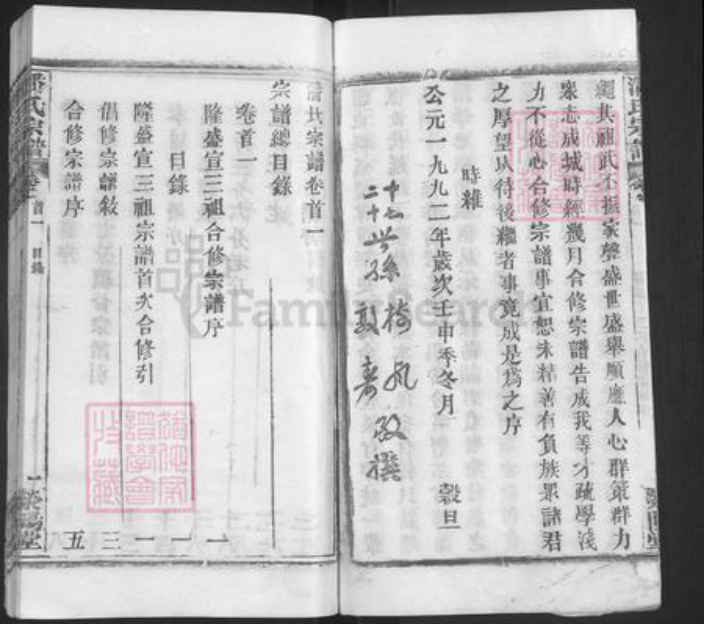 繩其祖武丕振家聲盛世盛舉順應人心群策群力
眾志成城時經幾月合修宗譜告成我等才疏學淺
力不從心合修宗譜事宜恕未精善有負族眾諸君
之厚望以待後繼者事竟成是為之序
時維
公元一九九二年歲次壬申季冬月 穀旦
十七
二十世孫
敬撰
潘氏宗譜
潘氏宗譜卷首一
宗譜總目錄
卷首一
隆盛宣三祖合修宗譜序 一
目錄 一
隆盛宣三祖宗譜首次合修引 一
倡修宗譜敘 三
合修宗譜序 五
潘氏宗譜
卷首一 目錄 一
滎陽堂
FamilySearch